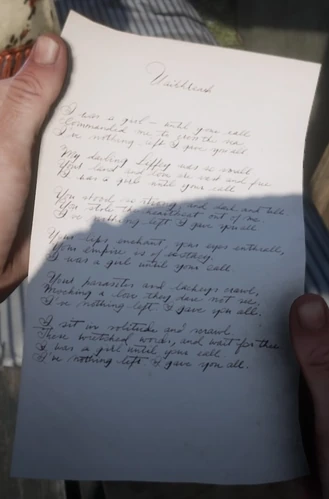 I was a girl – until your call
Commanded me to me
I've nothing left I give you all
My darling Liffey was so small
Your land and love so vast and free
I was a girl until your call
You stood so strong and dark and tall
You stole the heartbeat out of me
I've nothing left I gave you all
Your lips enchant your eyes enthrall,
Your empire is of ecstasy
I was a girl until your call.
Your parasites and lackeys crawl,
Mocking a love they dare not see,
I've nothing left I gave you all.
I sit in solitude and scrawl
These wretched words, and wait for thee
I was a girl until your call
I've nothing left I gave you all.